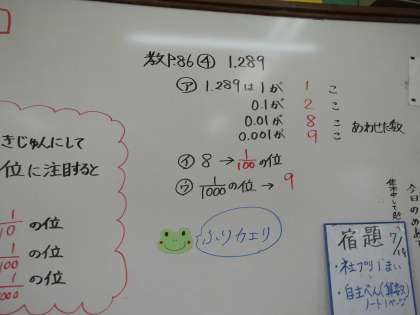 教P86④ 1.289
㋐ 1.289は1が 1 こ
0.1が 2 こ
0.01が 8 こ
0.001が 9 こ
あわせた数
㋑ 8 → 1/100の位
㋒ 1/1000の位 → 9
ふりカエリ
きじゅんにして
位に注目すると
1/10 の位
1/100 の位
1/1000 の位
今日のめあて
集中して
宿題 7/14
・社プリ1まい
・自主べん(算数)
ノート1ページ